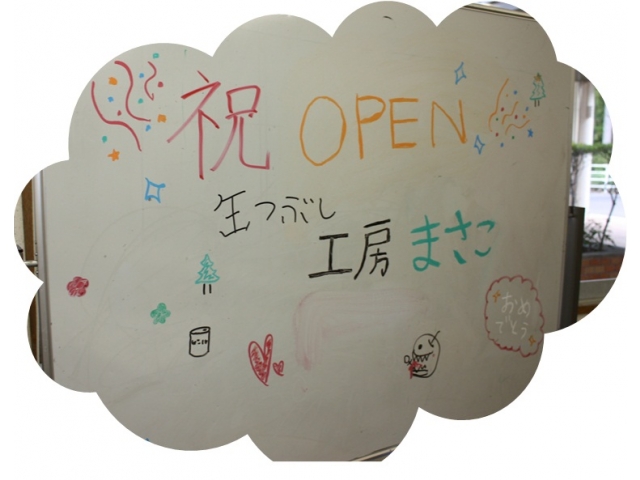 祝 OPEN
缶つぶし
工房 まさこ
おめ
でとう